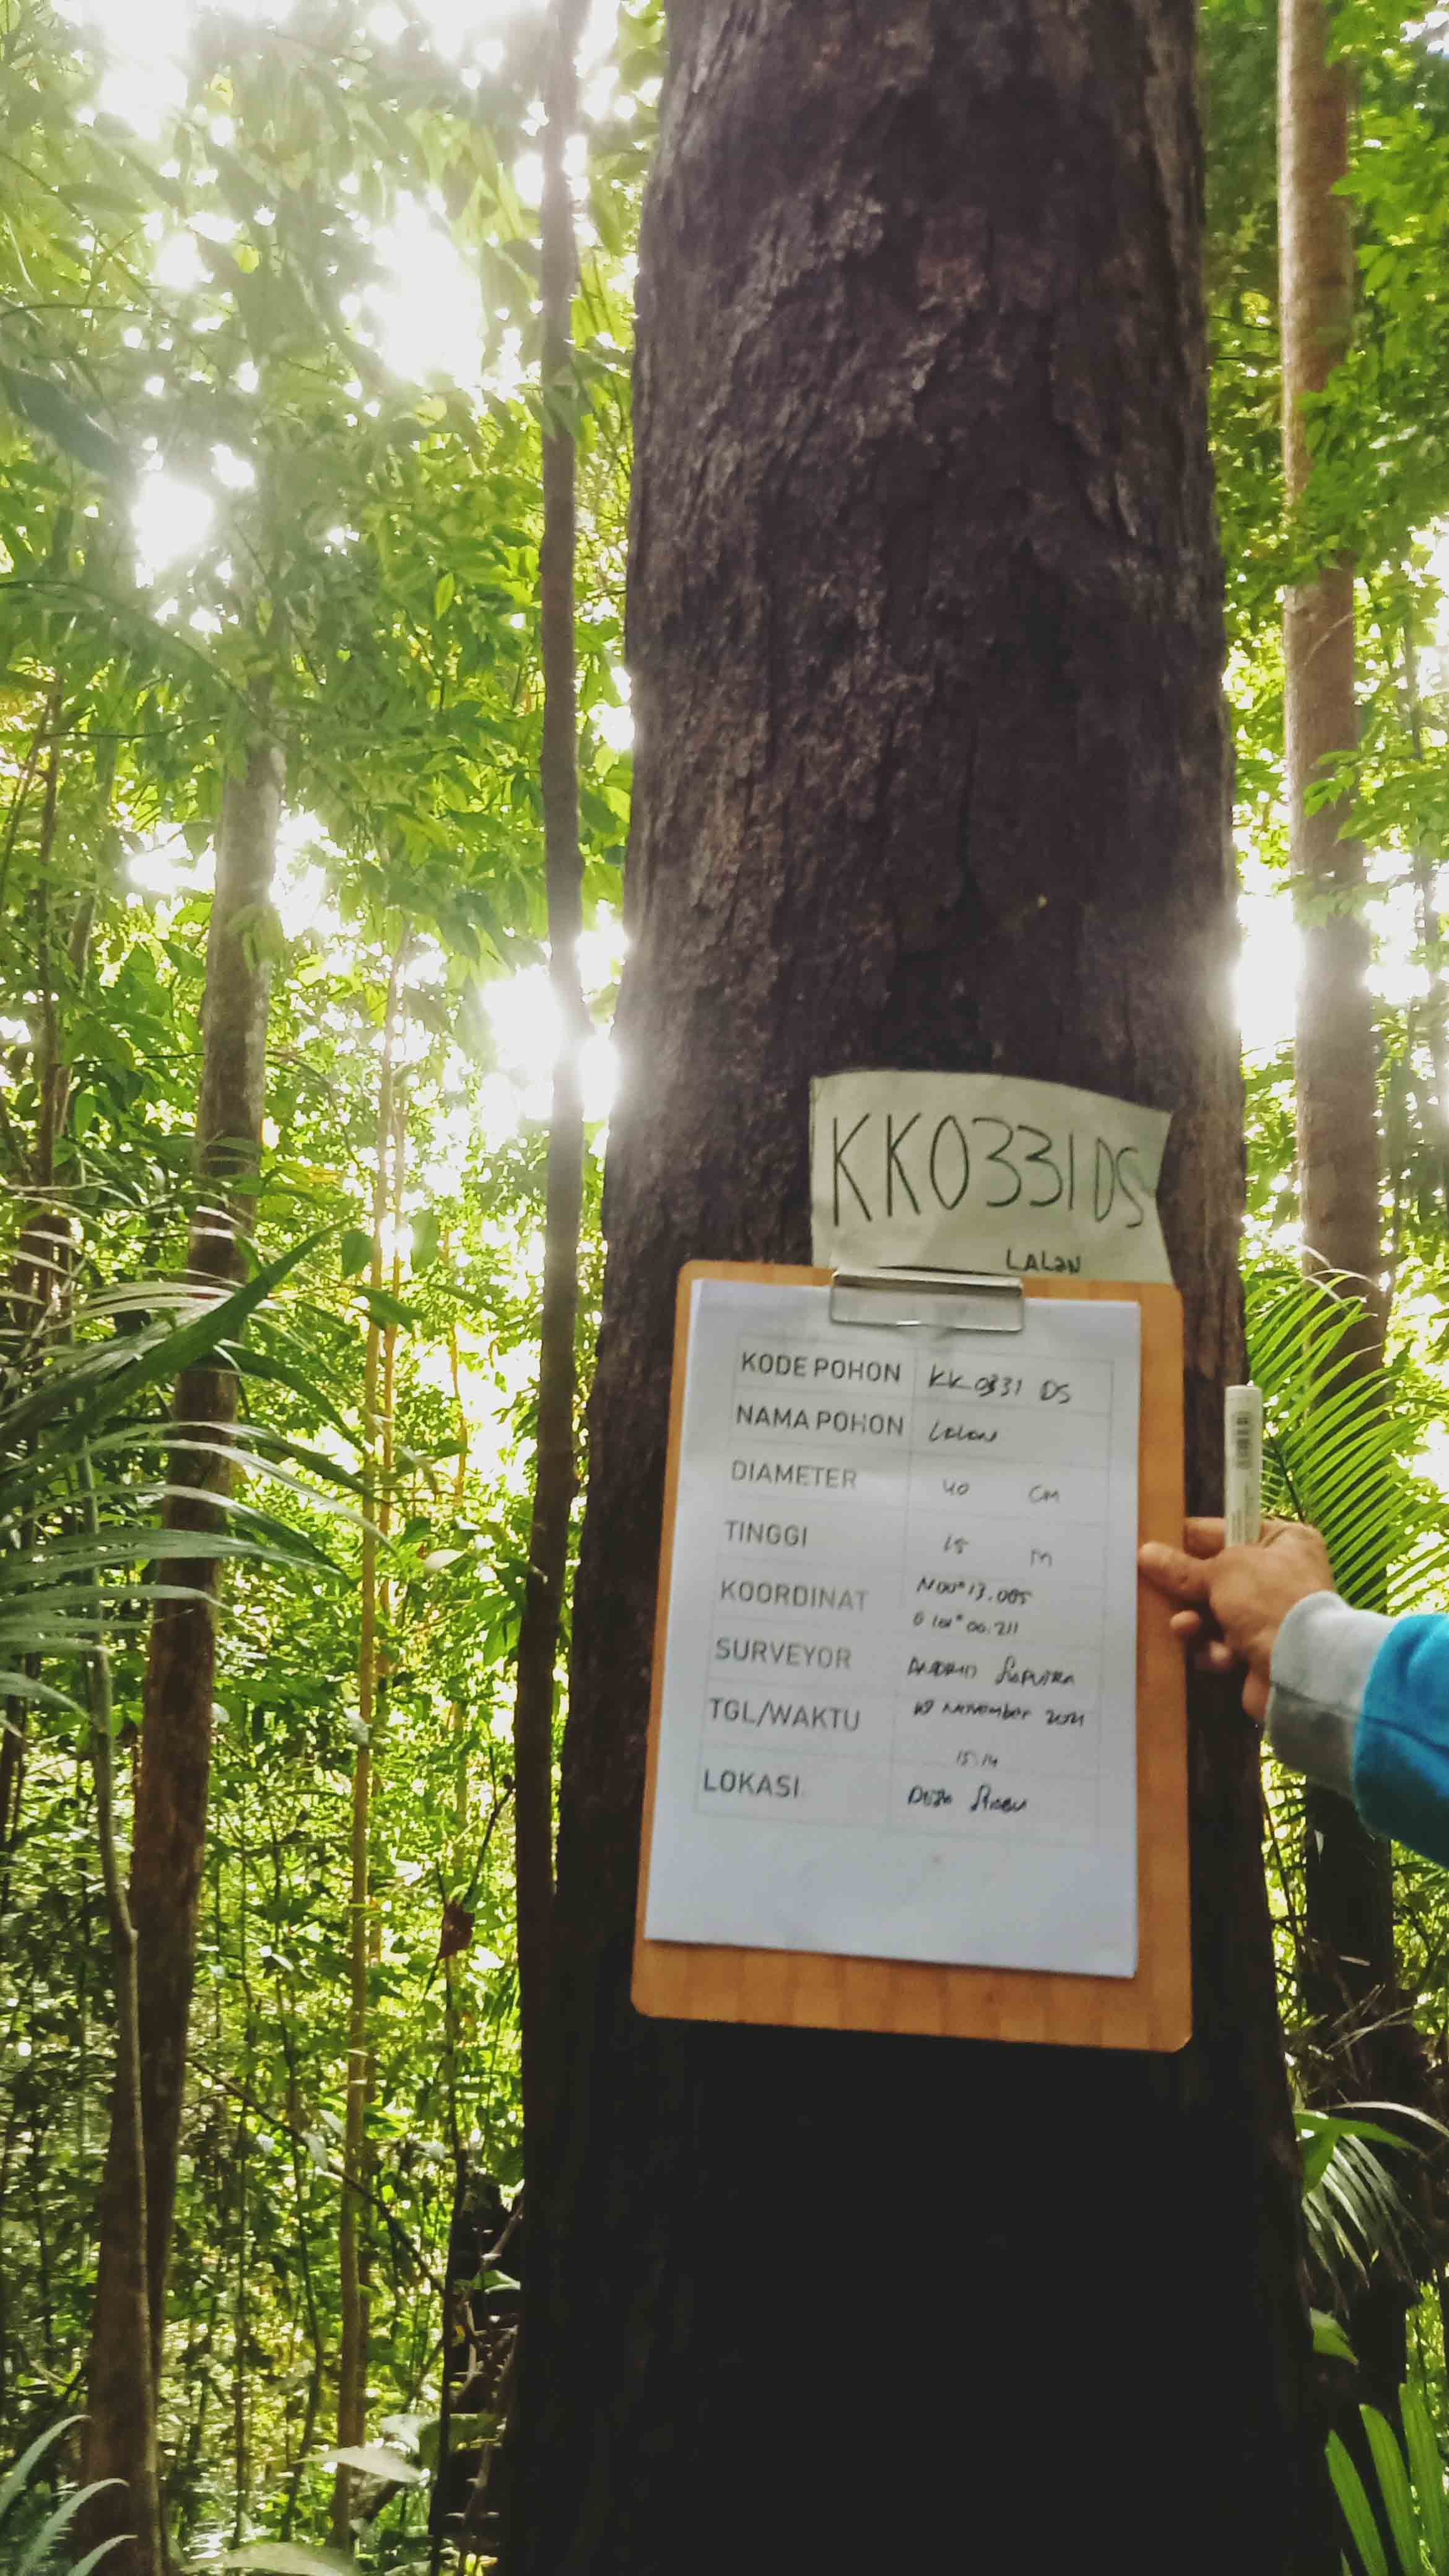 KK0331DS
LALAN
KODE POHON KK 0331 DS
NAMA POHON Lalan
DIAMETER 40 CM
TINGGI 15 M
KOORDINAT N 00° 13.005
E 101° 00.211
SURVEYOR SAPUTRA
TGL/WAKTU November 2021
15:14
LOKASI